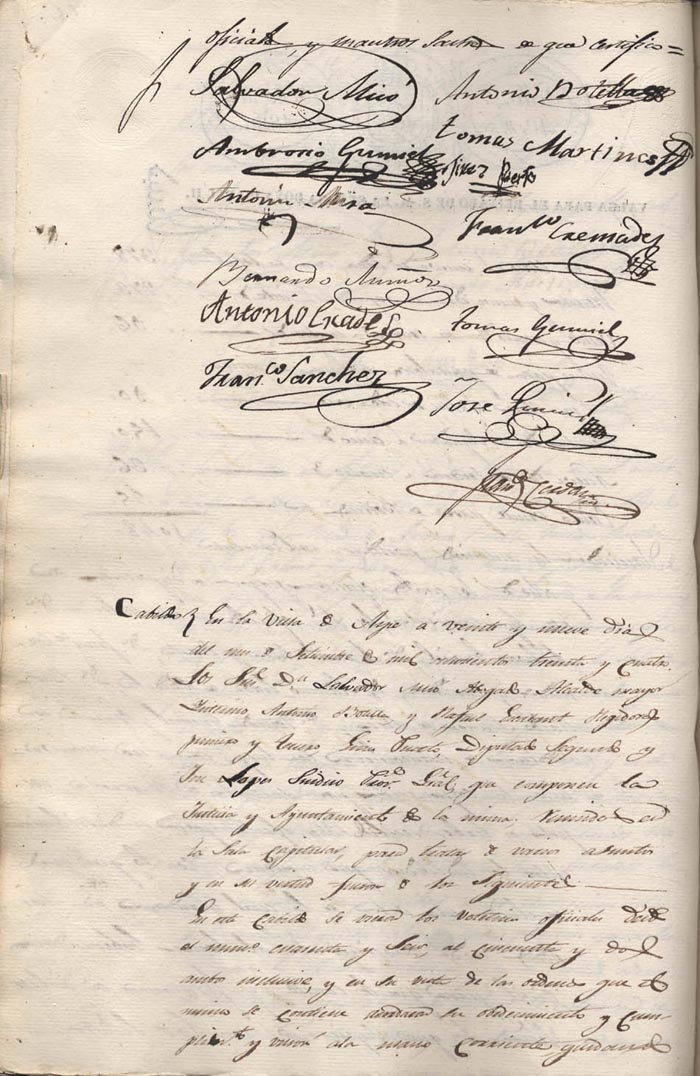 oficiales, y maestros Sastres de que certifico =
Salvador Miró Antonio Botella
Tomas Martines
Ambrosio Gumiel Gines Puerto
Antonio Mira
Franco Cremades
Bernardo Muñoz
Antonio Crades Tomas Gumiel
Franco Sanchez
Jose Gumiel
Cabildo En la Villa de Aspe a veinte y nueve dias
del mes de Setiembre de mil ochocientos treinta y cuatro
Los Sres Dn Salvador Miró Abogado Alcalde mayor
Interino Antonio Botella y Rafael Regidores
primero y tercero Gines Puerto, Diputado Segundo y
Jose Lopez Sindico Pror Gral, que componen la
Justicia y Ayuntamiento de la misma Reunidos en
la Sala Capitular, para tratar de varios asuntos
y en su virtud fueron los Siguientes
En este Cabildo se vieron los voletines oficiales desde
el numo cuarenta y Seis, al cincuenta y dos
ambo inclusive, y en su vista de las ordenes que el
mismo se contiene acordaron su obedecimiento y cum-
plimto y